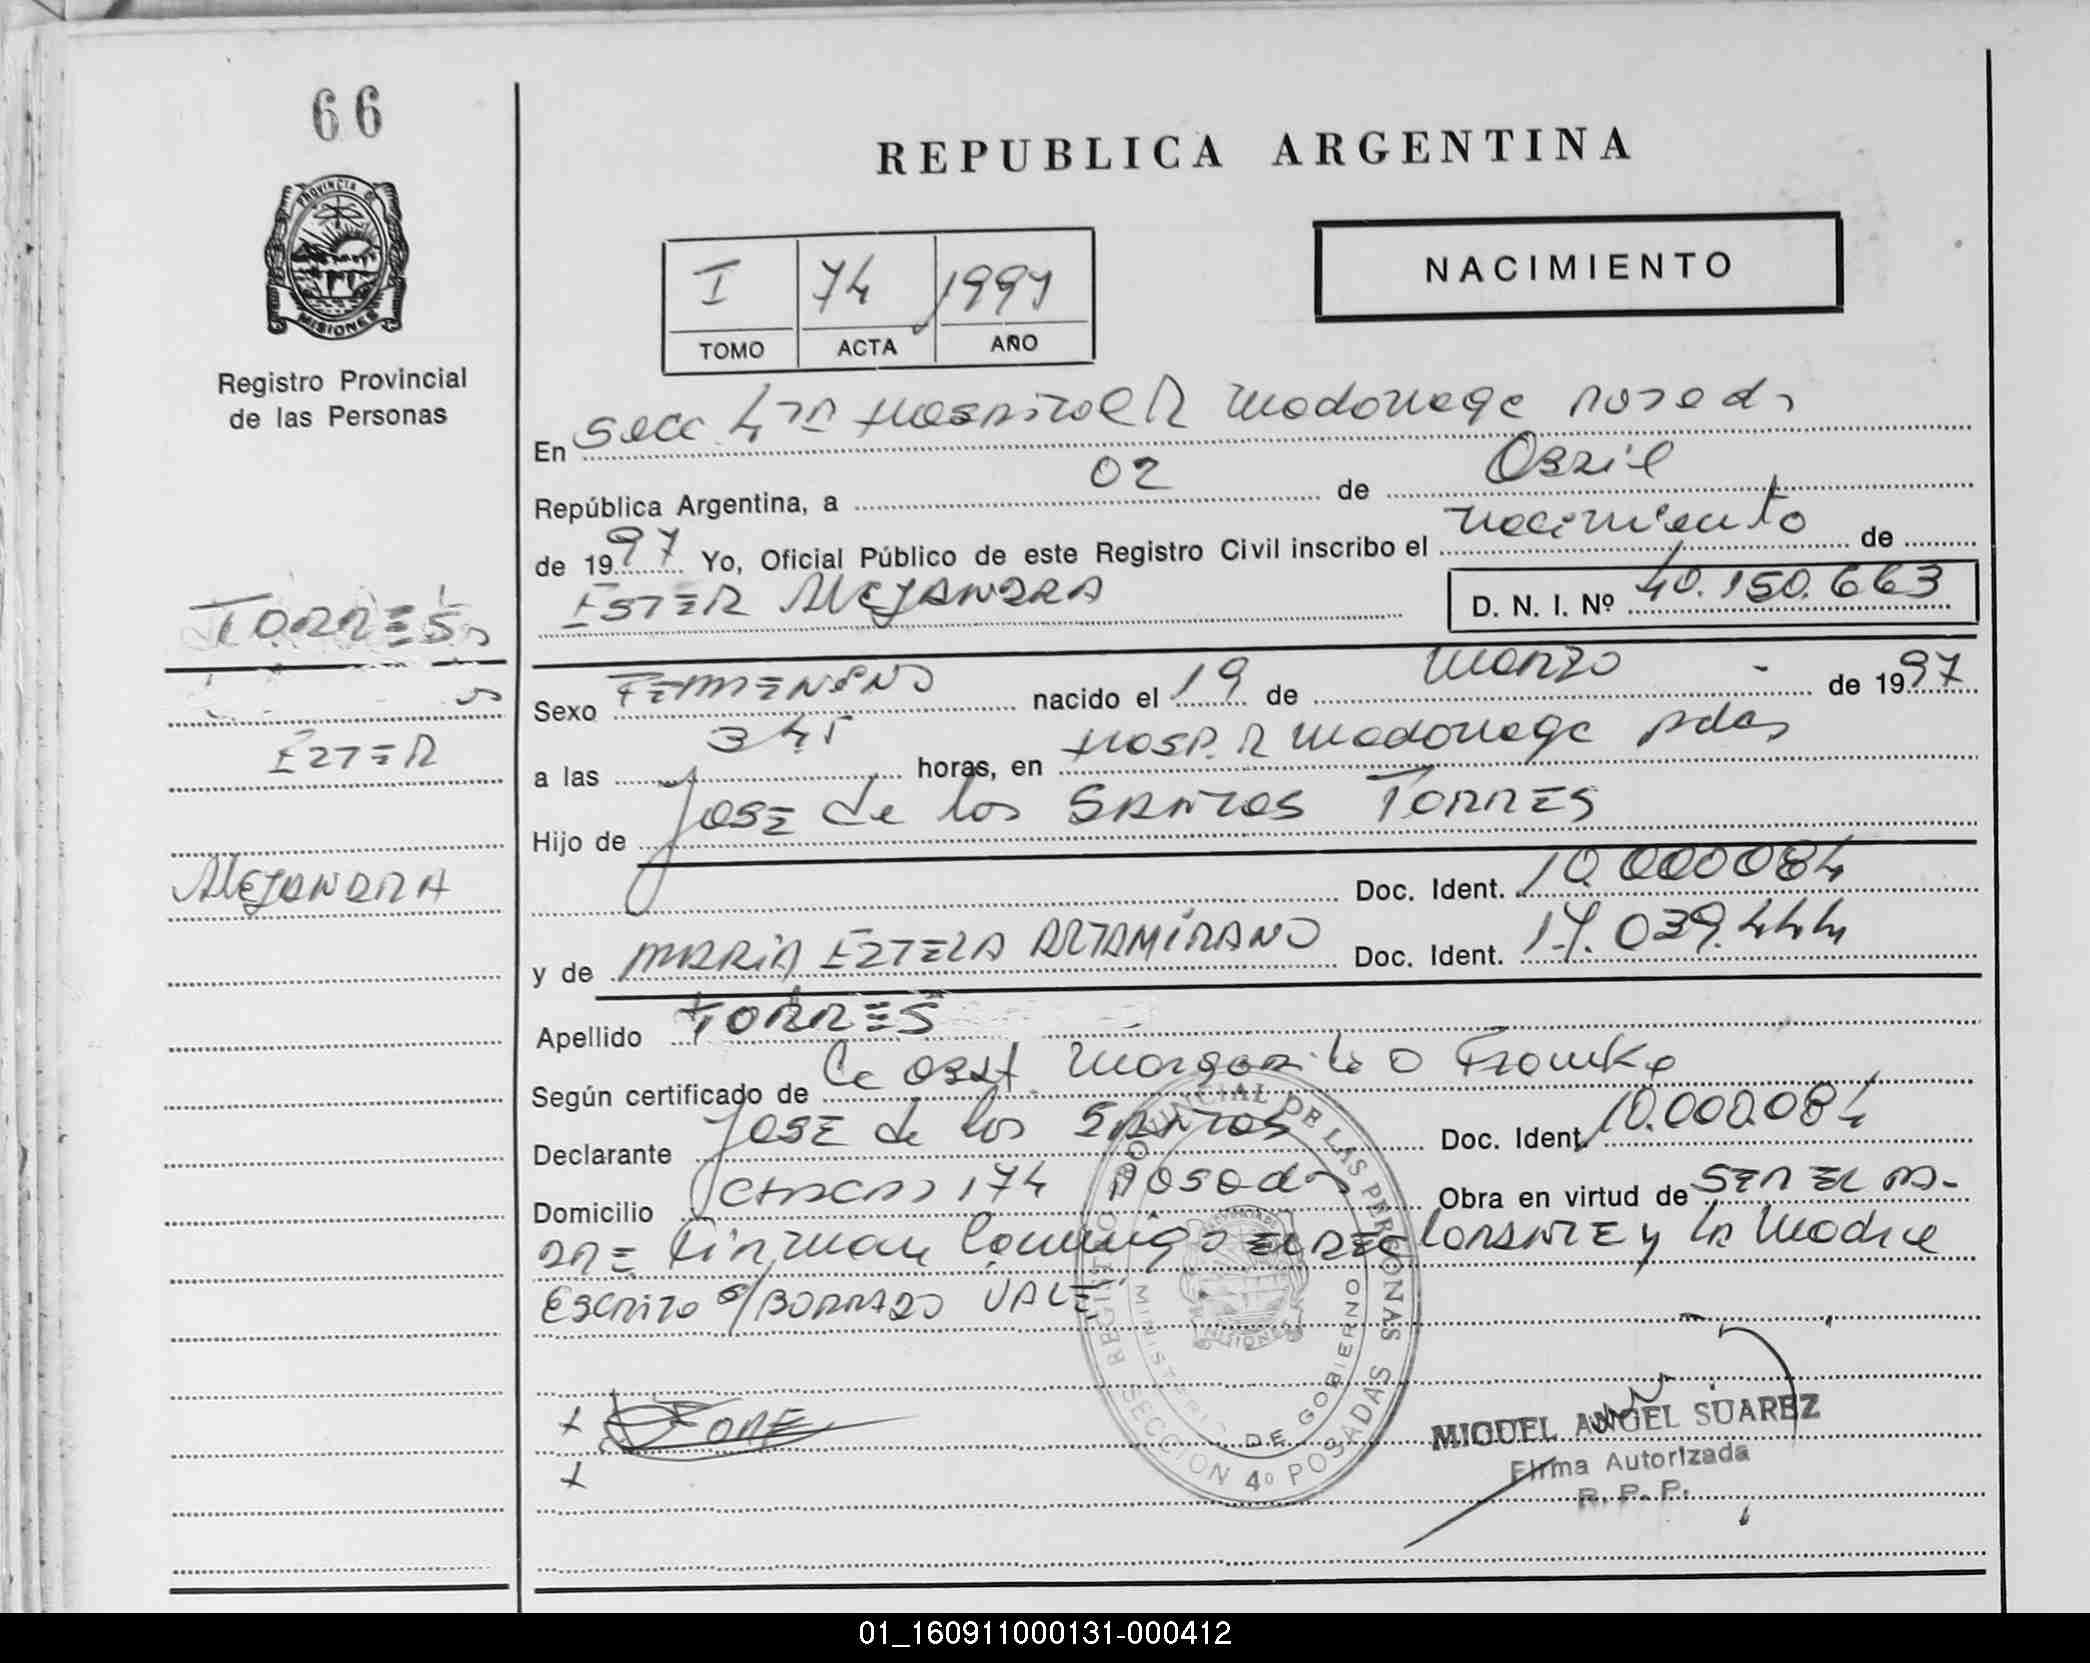 66
PROVINCIA D
MISIONES
Registro Provincial
de las Personas
REPUBLICA ARGENTINA
NACIMIENTO
I 74 1997
TOMO ACTA AÑO
En Secc 4ta Hospital R Madariaga Posadas
República Argentina, a 02 de Abril
de 1997 Yo, Oficial Público de este Registro Civil inscribo el nacimiento de
ESTER ALEJANDRA D. N. I. Nº 40.150.663
TORRES
ESTER
ALEJANDRA
Sexo FEMENINO nacido el 19 de Marzo - de 1997
a las 345 horas, en Hosp. R Madariaga Pdas
Hijo de JOSE de los SANTOS TORRES
Doc. Ident. 10.000084
y de MARIA ESTELA ALTAMIRANO Doc. Ident. 17.039.444
Apellido TORRES
Según certificado de La Obst. Margarita O Franke
Declarante JOSE de los SANTOS Doc. Ident. 10.000.084
Domicilio 174 Posadas Obra en virtud de SER EL PA-
DRE Firman EL DECLARANTE y la Madre
Escrito s/BORRADO VALE
REGISTRO PROVINCIAL DE LAS PERSONAS
MINISTERIO DE GOBIERNO
MISIONES
SECCION 4º POSADAS
MIGUEL ANGEL SUAREZ
Firma Autorizada
R. P. P.
01_160911000131-000412